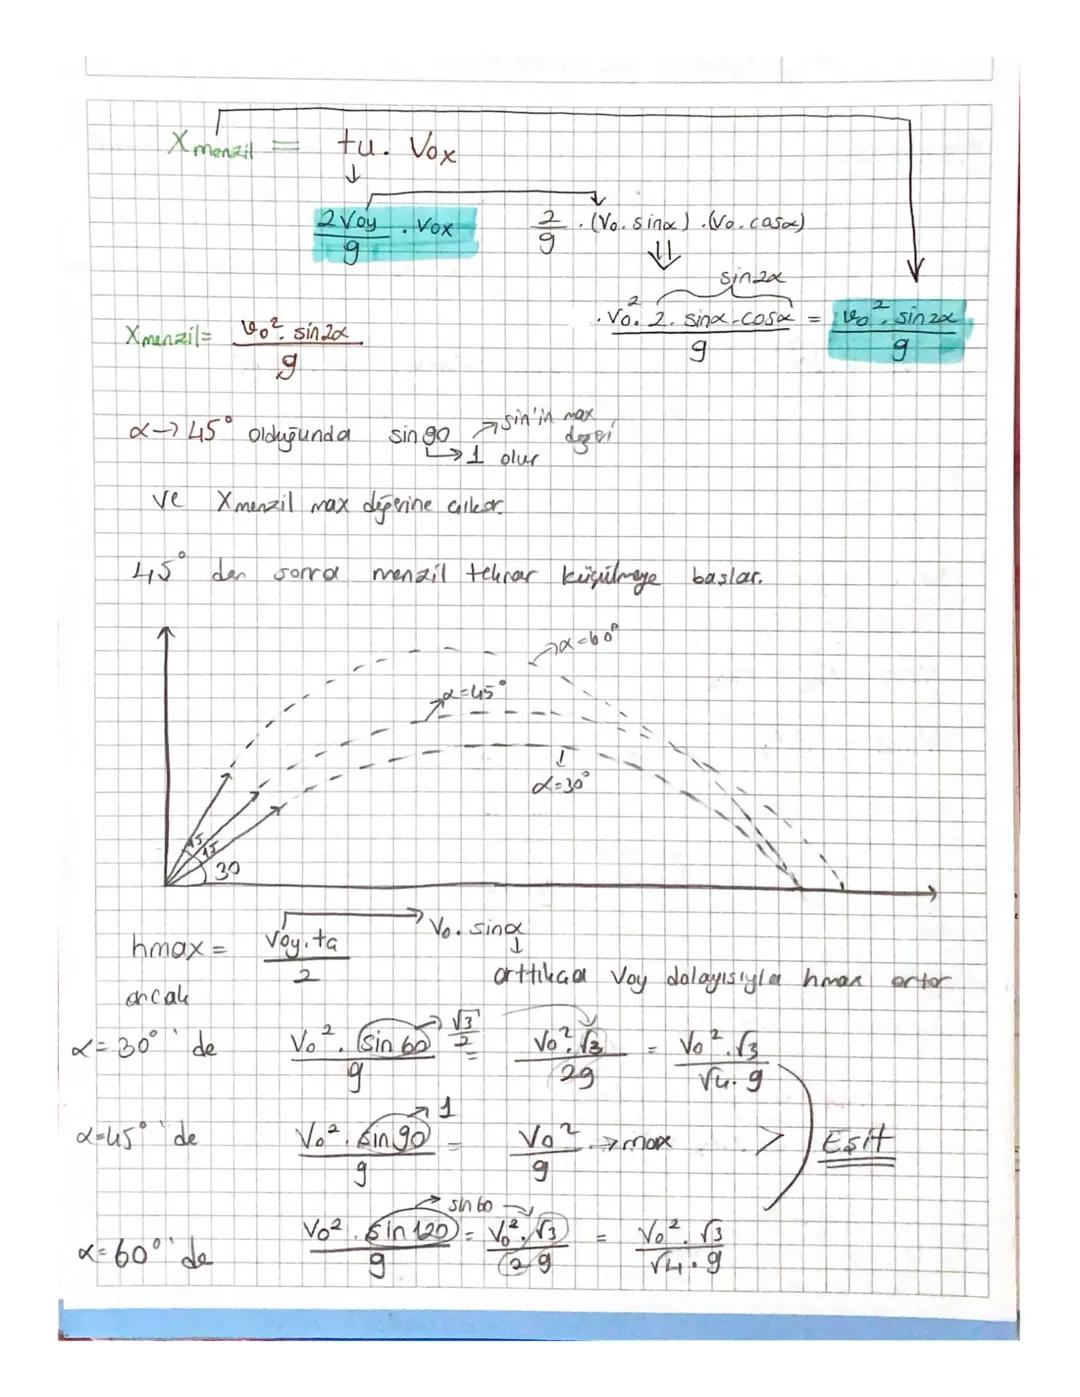 Xmenzil = tu. Vox
2Voy/g . Vox    2/g . (Vo. sinα) . (Vo. cosα)
sin2α
. Vo². 2. sinα.cosα / g = Vo². sin2α / g
Xmenzil= Vo². sin2α / g
α→ 45° olduğunda sin90 → sin'in max değeri
→ 1 olur
ve Xmenzil max değerine çıkar.
45° den sonra menzil tekrar küçülmeye başlar.
α=60°
α=45°
α=30°
15
15
30
hmax = Voy.ta / 2 → Vo. sinα
arttıkça Voy dolayısıyla hmax artar
ancak
α=30° 'de Vo². sin60 / g → √3/2 = Vo².√3 / 2g = Vo².√3 / √4.g
α=45° 'de Vo². sin90 / g → 1 = Vo² / g → max > Eşit
sin60
α=60° 'de Vo². sin120 / g = Vo².√3 / 2g = Vo². √3 / √4.g